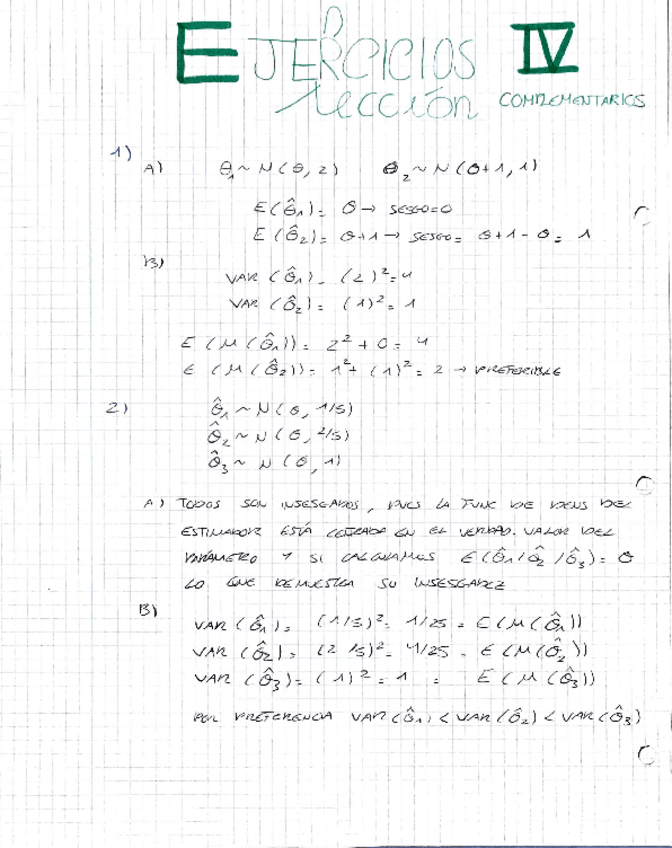 EJERCICIOS IV
Lección COMPLEMENTARIOS
1)
A) θ₁ ~ N(θ, 2) θ₂ ~ N(θ+1, 1)
E(θ̂₁) = θ → SESGO=0
E(θ̂₂) = θ+1 → SESGO = θ+1-θ = 1
B)
VAR (θ̂₁) = (2)² = 4
VAR (θ̂₂) = (1)² = 1
E (M(θ̂₁)) = 2² + 0 = 4
E (M(θ̂₂)) = 1² + (1)² = 2 → PREFERIBLE
2) θ̂₁ ~ N(θ, 1/5)
θ̂₂ ~ N(θ, 2/5)
θ̂₃ ~ N(θ, 1)
A) TODOS SON INSESGADOS, PUES LA FUNC DE DENS DEL
ESTIMADOR ESTÁ CENTRADA EN EL VERDAD. VALOR DEL
PARÁMETRO Y SI CALCULAMOS E(θ̂₁/θ̂₂/θ̂₃) = θ
LO QUE DEMUESTRA SU INSESGADEZ
B)
VAR (θ̂₁) = (1/5)² = 1/25 = E(M(θ̂₁))
VAR (θ̂₂) = (2/5)² = 4/25 = E(M(θ̂₂))
VAR (θ̂₃) = (1)² = 1 = E(M(θ̂₃))
POR PREFERENCIA VAR(θ̂₁) < VAR(θ̂₂) < VAR(θ̂₃)